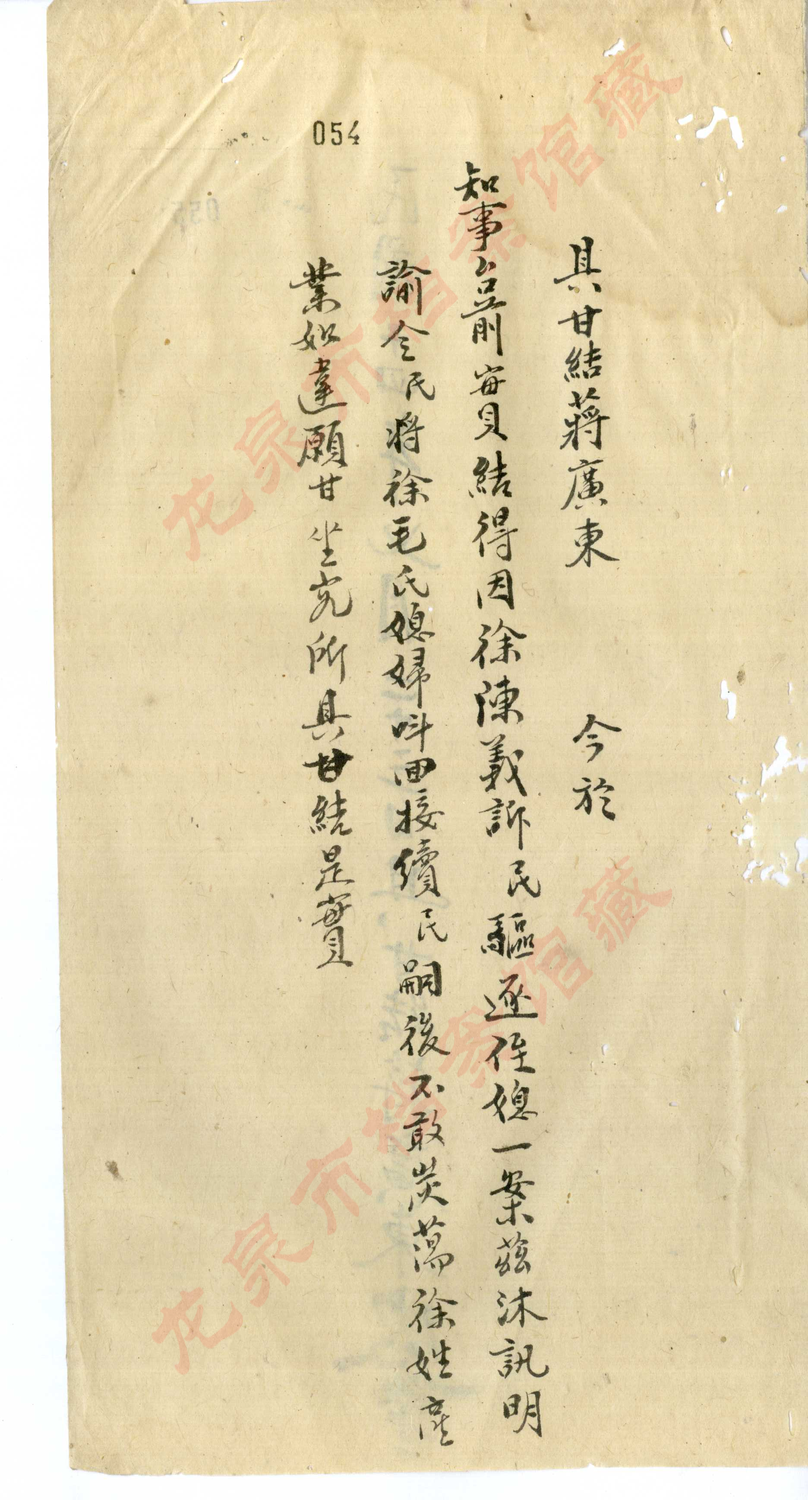 054
具甘結蔣廣東 今於
知事台前實結得因徐陳義訴民驅逐侄媳一案茲沐訊明
諭令民將徐毛氏媳婦呌回接續民嗣後不敢炭蕩徐姓產
業如違願甘坐究所具甘結是實
龙泉市档案馆藏
龙泉市档案馆藏